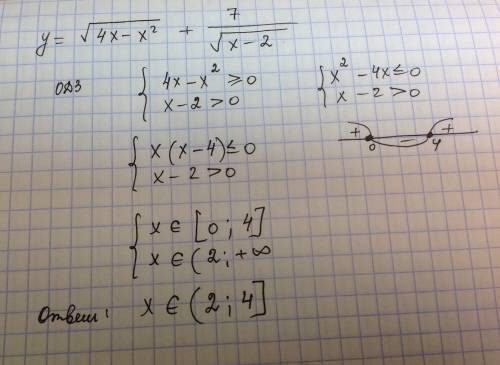 y = √(4x - x²) + 7/√(x - 2)
ОДЗ { 4x - x² ≥ 0 { x² - 4x ≤ 0
x - 2 > 0 x - 2 > 0
+ - +
0 4
{ x (x - 4) ≤ 0
x - 2 > 0
{ x ∈ [0 ; 4]
x ∈ (2 ; +∞
Ответ: x ∈ (2 ; 4]